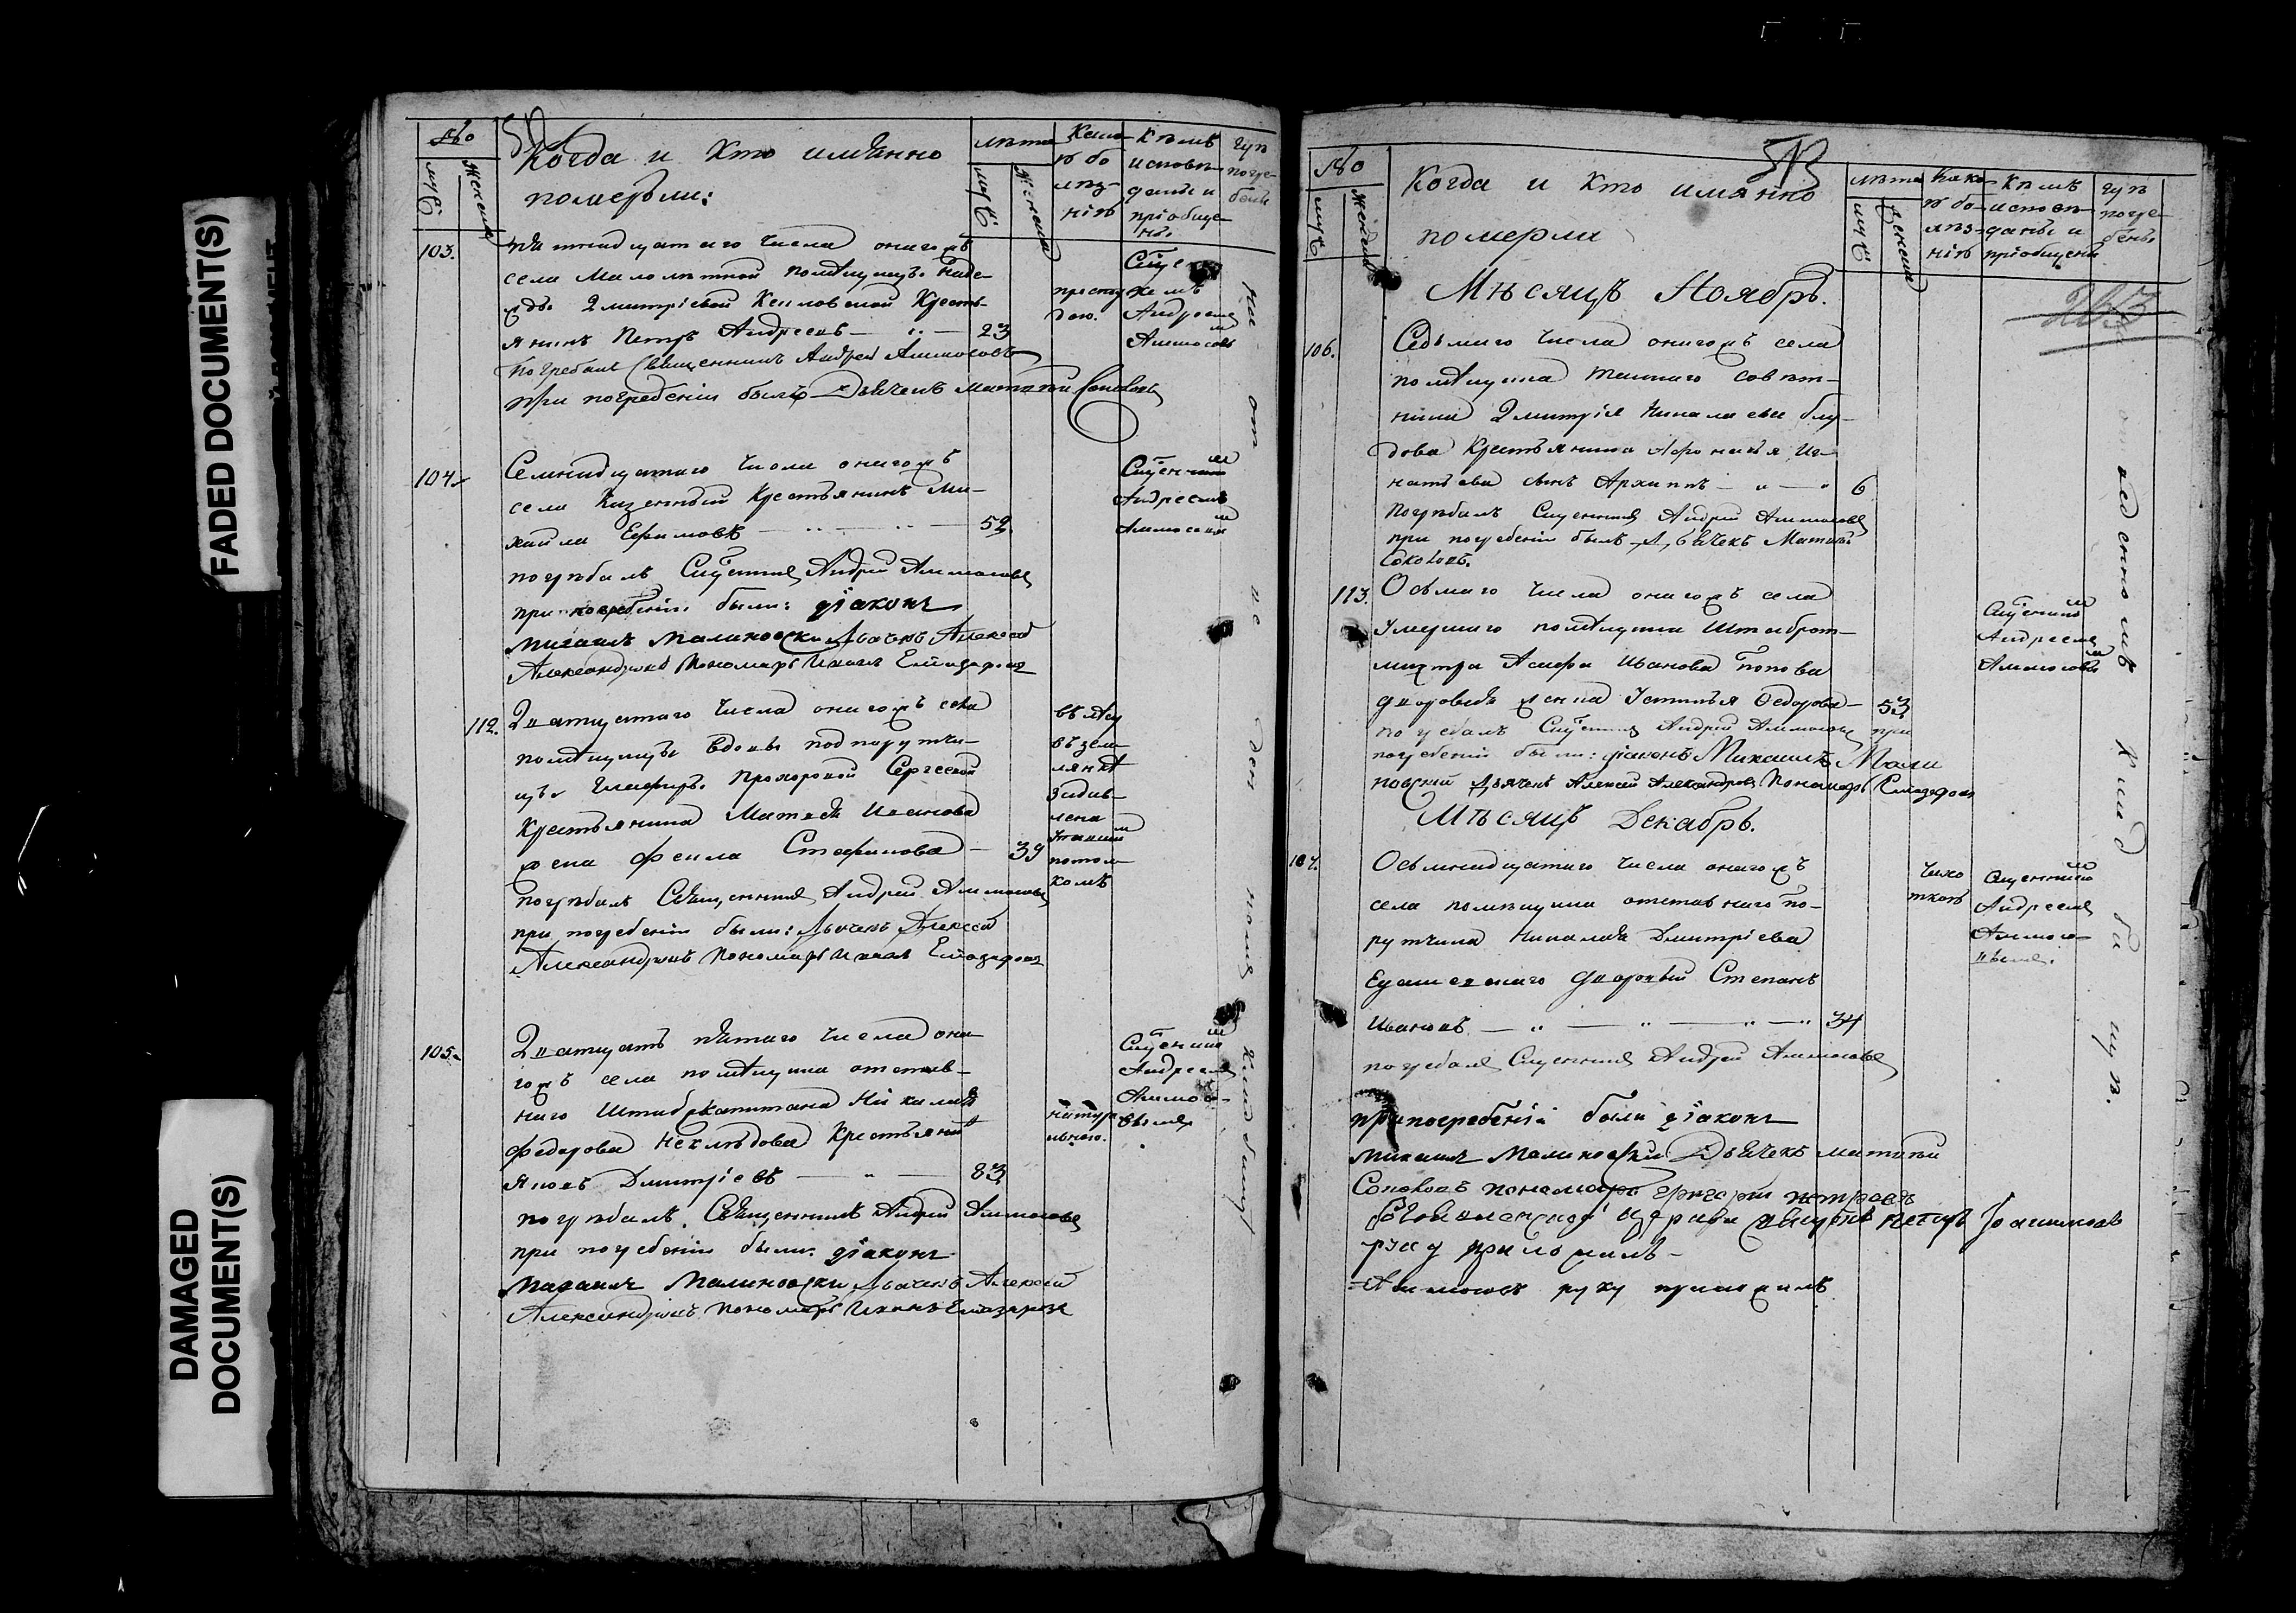 FADED DOCUMENT(S)
DAMAGED
DOCUMENT(S)
№
муж
женска
Когда и кто имянно
померъли:
лѣта
муж
женска
Какою
болѣз-
нію
Кѣмъ
исповѣ-
даны и
пріобще-
ны
гдѣ
погре-
бены
103.
пятнадцатаго числа онагожъ
села малолѣтной помѣщицы Наде-
жды Дмитріевой Кесловской Кресть-
янинъ Петръ Андреевъ 23
погребалъ Священникъ Андрей Аммосовъ
при погребеніи былъ Дьячекъ Матвѣй Соколовъ
простудою.
Андреемъ
Аммосовымъ
104.
Семнадцатаго числа онагожъ
села Казенный Крестьянинъ Ми-
хайла Ефимовъ 52
погрѣбалъ Священникъ Андрей Аммосовъ
при погребеніи были: діаконъ
Михаилъ Малиновски Дьячекъ Алексей
Александровъ Пономарь Иванъ Елиазаровъ
Священникомъ
Андреемъ
Аммосовымъ
112.
Дватцатаго числа онагожъ села
помѣщицы Вдовы подпорутчи-
цы Глафиры Прохоровой Сергеевой
Крестьянина Матвея Иванова
жена Фекла Стефанова 39
погрѣбалъ Священникъ Андрей Аммосовъ
при погребеніи были: Дьячекъ Алексей
Александровъ Пономарь Иванъ Елиазаровъ
въ лѣсу
въ зем-
лянке
задав-
лена
упавшимъ
потол-
комъ
105.
Дватцать пятаго числа она-
гожъ села помѣщика отстав-
наго Штабскапитана Николая
Федорова Нехлѣдова Крестьянинъ
Яковъ Дмитріевъ 83
погрѣбалъ Священникъ Андрей Аммосовъ
при погребеніи были: діаконъ
Михаилъ Малиновски Дьячекъ Алексей
Александровъ Пономарь Иванъ Елиазаровъ
натура
льною.
Священникомъ
Андреемъ
Аммосо-
вымъ
на от не ден номъ Клад бищѣ
№
муж
женска
Когда и кто имянно
померли
лѣта
муж
женска
Како-
ю бо-
лѣз-
нію
Кѣмъ
исповѣ-
даны и
пріобщены
гдѣ
погре-
бены
Мѣсяцъ Ноябрь.
106.
Седьмаго числа онагожъ села
помѣщика Тайнаго совѣт-
ника Дмитрія Николаева Блу-
дова Крестьянина Афонасья Иг-
натьева сынъ Архиппъ 6
Погрѣбалъ Священникъ Андрей Аммосовъ
при погребеніи былъ Дьячекъ Матвѣй
Соколовъ.
113.
Осьмаго числа онагожъ села
умершаго помѣщика Штаброт-
мистра Асафа Иванова Попова
дворовыя женка Устинья Федорова 53
погребалъ Священникъ Андрей Аммосовъ при
погребеніи были: діаконъ Михаилъ Мали
новскій Дьячекъ Алексей Александровъ Пономарь Елиазаровъ
Священникомъ
Андреемъ
Аммосовымъ
Мѣсяцъ Декабрь.
107.
Осьмнадцатаго числа онагожъ
села помѣщика отставнаго По-
рутчика Николая Дмитріева
дворовый Степанъ
Ивановъ 34
погребалъ Священникъ Андрей Аммосовъ
при погребеніи были діаконъ
Михаилъ Малиновски Дьячекъ Матвѣй
Соколовъ пономарь Григорій Петровъ
руку приложилъ
Аммосовъ руку приложилъ
Чахо
ткою
Священникомъ
Андреемъ
Аммосо-
вымъ.
от веденномъ Клад би щѣ.